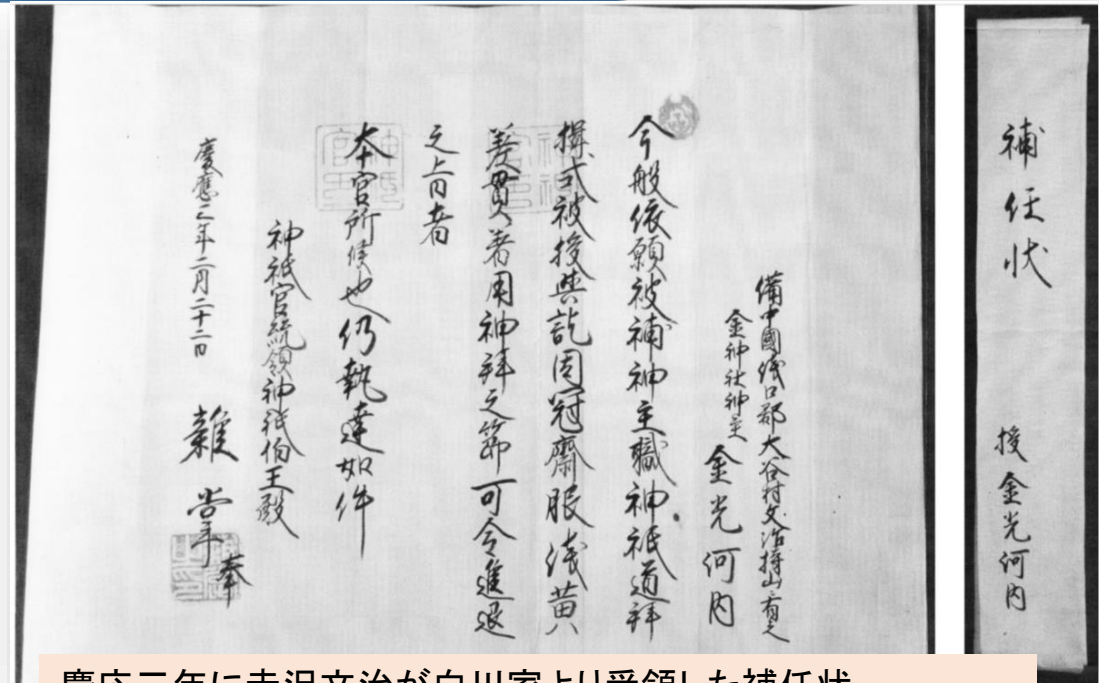 補任状
授 金光河内
備中國浅口郡大谷村文治持山ニ有之
金神社神主
金光河内
今般依願被補神主職神祇道拝
揖式被授與訖因冠齋服浅黄
差貫着用神拝之節可令進退
之旨者
本官所候也仍執達如件
神祇官統領神祇伯王殿
慶應三年二月二十二日 雑掌 奉
慶応三年に赤沢文治が白川家より受領した補任状